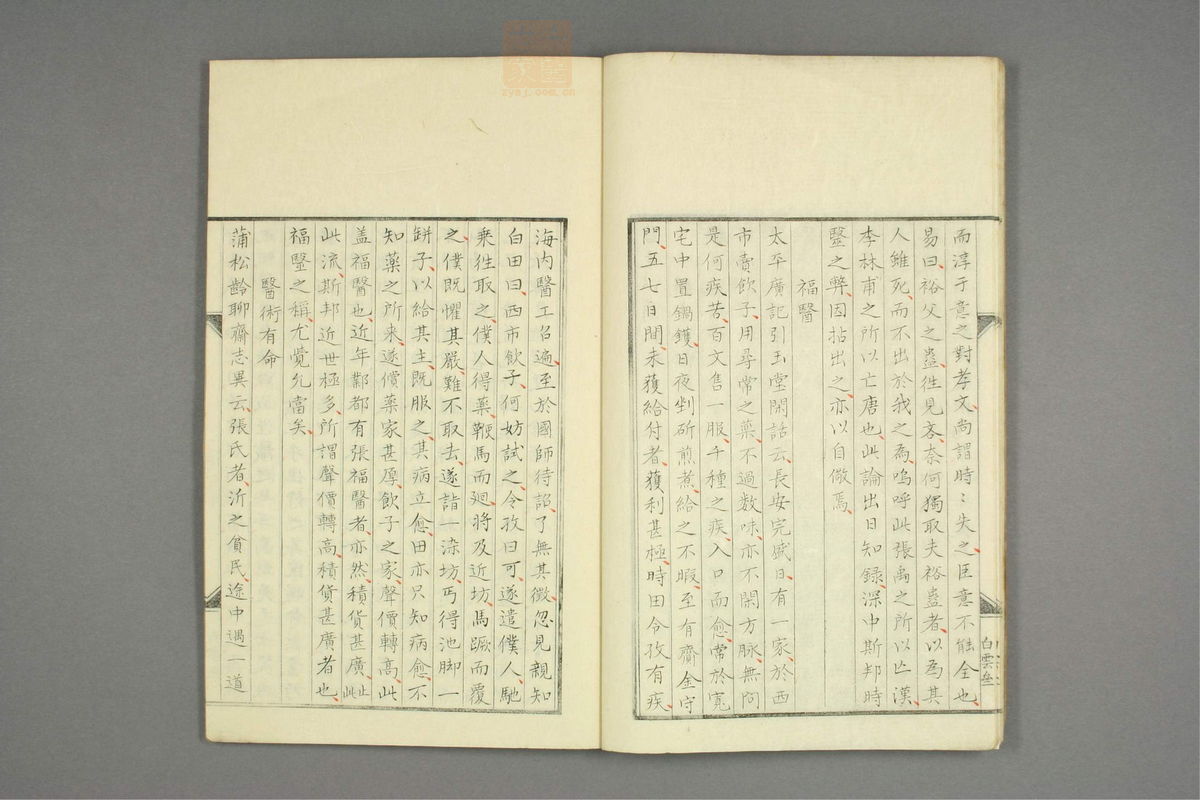 而淳于意之對孝文尚謂時〻失之臣意不能全也
易曰裕父之蠱徃見吝奈何獨取夫裕蠱者以為其
人雖死而不出於我之為嗚呼此張禹之所以亡漢
李林甫之所以亡唐也此論出日知録深中斯邦時
毉之弊因拈出之亦以自儆焉
福醫
太平廣記引玉堂閑話云長安完盛日有一家於西
市賣飲子用尋常之藥不過数味亦不閑方脉無問
是何疾苦百文售一服千種之疾入口而愈常於寬
宅中置鍋鑊日夜剉斫煎煮給之不暇至有齎金守
門五七日間未獲給付者獲利甚極時田令孜有疾
白雲堂
海内醫工召遍至於國師待詔了無其徴忽見親知
白田曰西市飲子何妨試之令孜曰可遂遣僕人馳
乗徃取之僕人得藥鞭馬而廻将及近坊馬蹶而覆
之僕既懼其嚴難不取去遂詣一染坊丐得池脚一
缾子以給其主既服之其病立愈田亦只知病愈不
知藥之所来遂償藥家甚厚飲子之家聲價轉高此
盖福醫也近年鄴都有張福醫者亦然積貨甚廣止此
此流斯邦近世極多所謂聲價轉高積貨甚廣者也
福毉之稱尤覺允當矣
醫術有命
蒲松齡聊齋志異云張氏者沂之貧民途中遇一道
zysj.com.cn